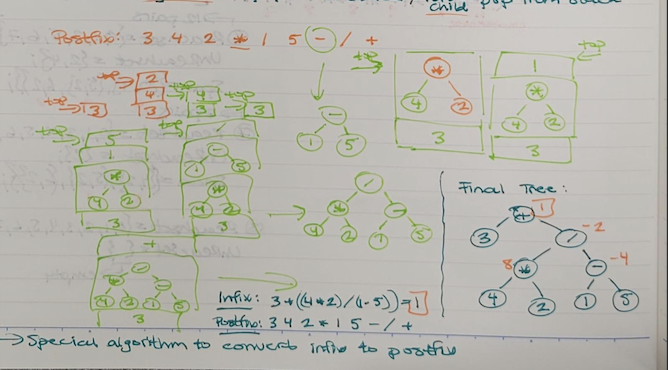 child pop from stack
Postfix: 3 4 2 * 1 5 - / +
top 2
4 top 4 top
top 3 3 3 3
top * 4 2 3
top 1 * 4 2 3
- 1 5
top 5 1 * 4 2 3
top / - 1 5 * 4 2 3
/ * - 4 2 1 5
+ / * - 4 2 1 5 3
Final Tree:
+ 1
3 / -2
8 * - -4
4 2 1 5
Infix: 3+((4*2)/(1-5))=1
Postfix: 3 4 2 * 1 5 - / +
→ Special algorithm to convert infix to postfix